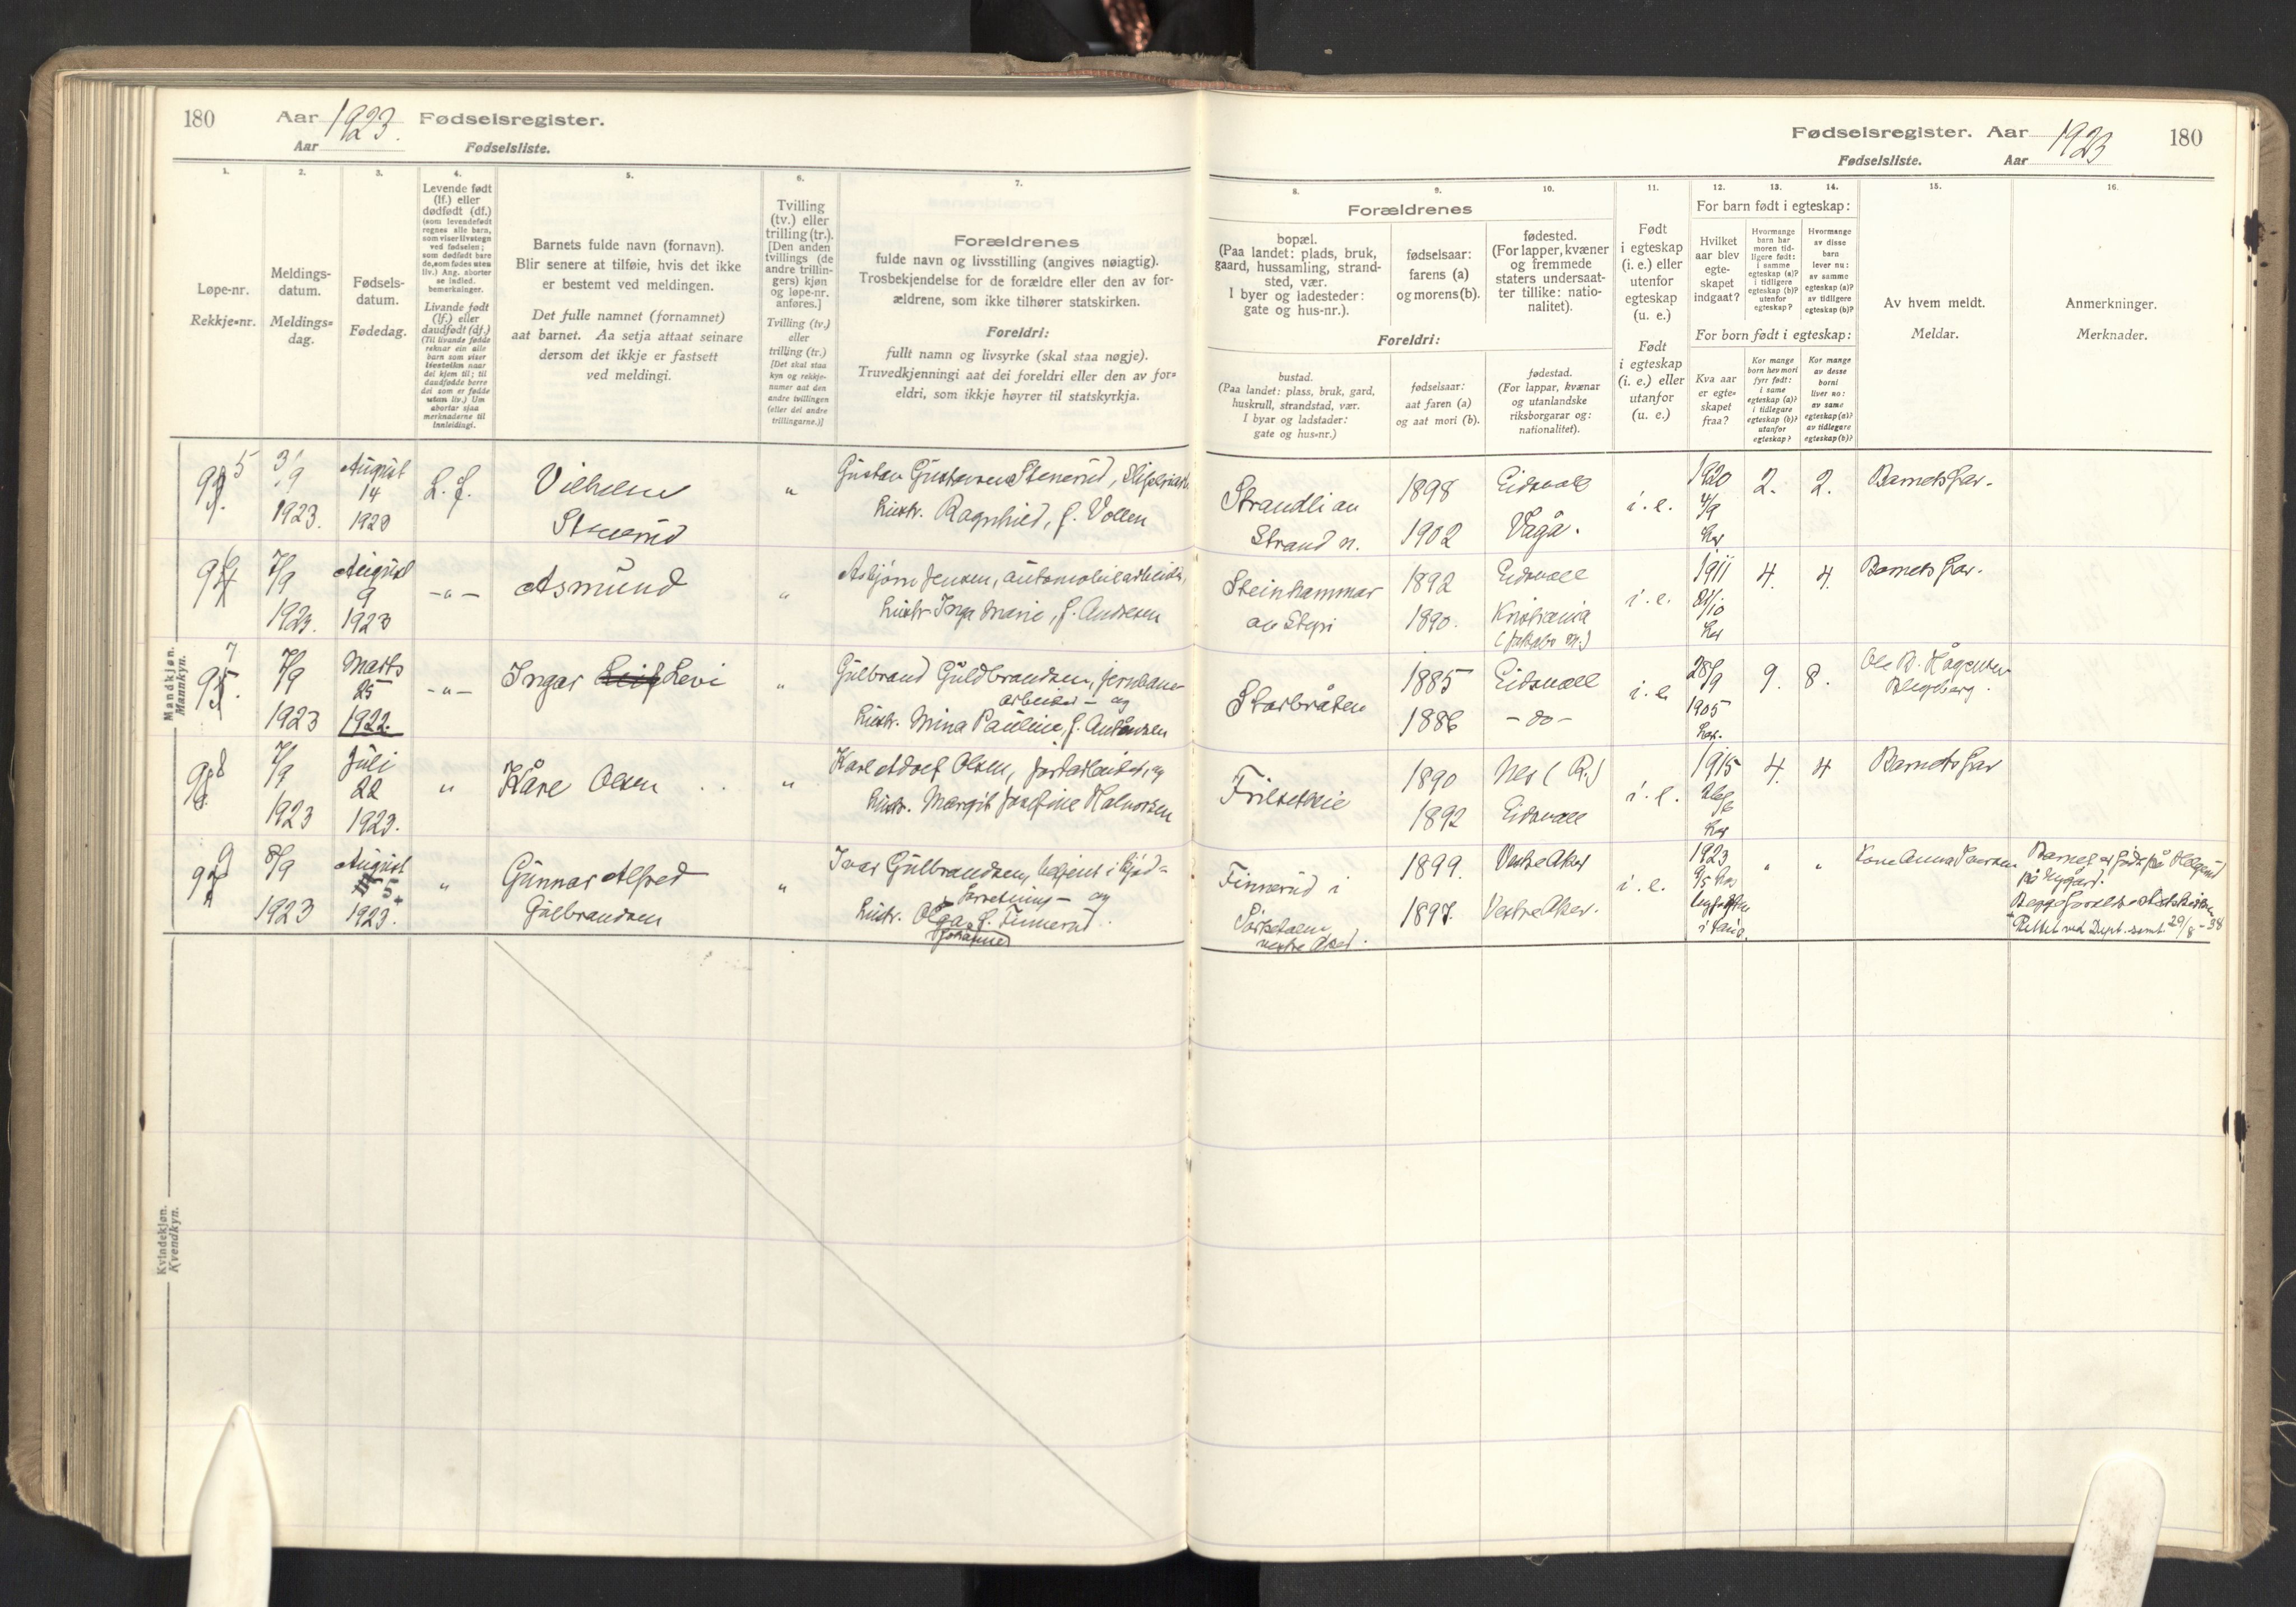 180 Aar 1923. Fødselsregister.
Aar Fødselsliste.
Fødselsregister. Aar 1923 180
Fødselsliste. Aar
1. 2. 3. 4. 5. 6. 7.
Løpe-nr.
Rekkje-nr.
Meldings-
datum.
Meldings-
dag.
Fødsels-
datum.
Fødedag.
Levende født
(lf.) eller
dødfødt (df.)
(som levendefødt
regnes alle barn,
som viser livstegn
ved fødselen;
som dødfødt bare
de, som fødes uten
liv.) Ang. aborter
se indled.
bemerkninger.
Livande født
(lf.) eller
daudfødt (df.)
(Til livande fødde
reknar ein alle
born som viser
livsteikn naar
dei kjem til; til
daudfødde berre
dei som er fødde
utan liv.) Um
abortar sjaa
merknaderne til
innleidingi.
Barnets fulde navn (fornavn).
Blir senere at tilføie, hvis det ikke
er bestemt ved meldingen.
Det fulle namnet (fornamnet)
aat barnet. Aa setja attaat seinare
dersom det ikkje er fastsett
ved meldingi.
Tvilling
(tv.) eller
trilling (tr.).
[Den anden
tvillings (de
andre trillin-
gers) kjøn
og løpe-nr.
anføres.]
Tvilling (tv.)
eller
trilling (tr.)
[Det skal staa
kyn og rekkje-
numer aat den
andre tvillingen
(eller dei andre
trillingarne.)]
Forældrenes
fulde navn og livsstilling (angives nøiagtig).
Trosbekjendelse for de forældre eller den av for-
ældrene, som ikke tilhører statskirken.
Foreldri:
fullt namn og livsyrke (skal staa nøgje).
Truvedkjenningi aat dei foreldri eller den av for-
eldri, som ikkje høyrer til statskyrkja.
8. 9. 10. 11. 12. 13. 14. 15. 16.
Forældrenes
bopæl.
(Paa landet: plads, bruk,
gaard, hussamling, strand-
sted, vær.
I byer og ladesteder:
gate og hus-nr.).
fødselsaar:
farens (a)
og morens (b).
fødested.
(For lapper, kvæner
og fremmede
staters undersaat-
ter tillike: natio-
nalitet).
Foreldri:
bustad.
(Paa landet: plass, bruk, gard,
huskrull, strandstad, vær.
I byar og ladstader:
gate og hus-nr.)
fødselsaar:
aat faren (a)
og aat mori (b).
fødestad.
(For lappar, kvænar
og utanlandske
riksborgarar og:
nationalitet).
Født
i egteskap
(i. e.) eller
utenfor
egteskap
(u. e.)
Født
i egteskap
(i. e.) eller
utanfor
(u. e.)
For barn født i egteskap:
Hvilket
aar blev
egte-
skapet
indgaat?
Hvormange
barn har
moren tid-
ligere født:
i samme
egteskap (a)?
i tidligere
egteskap (b)?
utenfor
egteskap?
Hvormange
av disse
barn
lever nu:
av samme
egteskap (a)?
av tidligere
egteskap (b)?
For born født i egteskap:
Kva aar
er egte-
skapet
fraa?
Kor mange
born hev mori
fyrr født:
i same
egteskap (a)?
i tidlegare
egteskap (b)?
utanfor
egteskap?
Kor mange
av desse
borni
liver no:
av same
egteskap (a)?
av tidlegare
egteskap (b)?
Av hvem meldt.
Meldar.
Anmerkninger.
Merknader.
Mandkjøn.
Mannkyn.
5 3/9 1923. August 14 1923 L. f. Vilhelm Stenerud " Gustav Gustavsen Stenerud,
hustr. Ragnhild, f. Vollen
Strandli au Strand n. 1898 1902 Eidsvoll Vågå. i. e. 1920 4/9 2. 2. Barnets far.
7/9 1923. August 9 1923 -"- Asmund " Asbjørn Jensen, automobilarbeider,
hustr. Inga Marie, f. Andresen
Steinhammar 1892 1890. Eidsvoll Kristiania i. e. 1911 4. 4. Barnets far.
7 7/9 1923 Marts 25 1922. -"- Ingar Leif Levi " Gulbrand Guldbrandsen, jernbane-
arbeider - og
hustr. Mina Pauline, f. Antonsen
Storbråten 1885 1886 Eidsvoll -do- i. e. 28/9 1905 9. 8. Ole
8 7/9 1923 Juli 22 1923. " Kåre Olsen " Karl Adolf Olsen, og
hustr. Margit Josefine Halvorsen
1890 1892 Nes (R.) Eidsvoll i. e. 1915 4. 4 Barnets far
9 8/9 1923 August 5 1923. " Gunnar Alfred Gulbrandsen " Ivar Gulbrandsen, betjent i kjød-
forretning - og
hustr. Olga f. Finnerud.
Johanne
Finnerud i Sørkedalen vestre Aker. 1899. 1897. Vestre Aker Vestre Aker. i. e. 1923 " " Kone Anna
Barnet er født på
på Nygård.
Rettet ved Dept. 29/8 - 38
Kvindekjøn.
Kvendkyn.